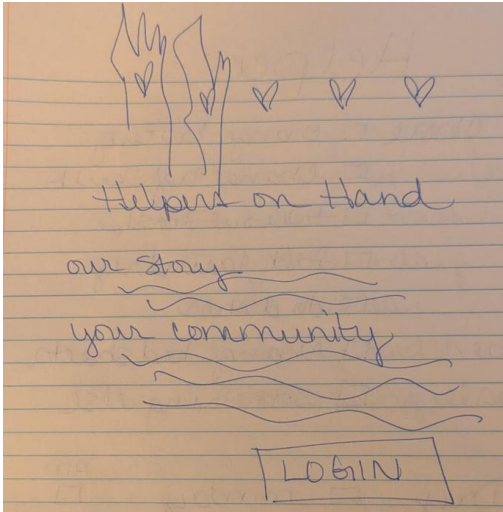 Helpers on Hand
our story
your community
LOGIN